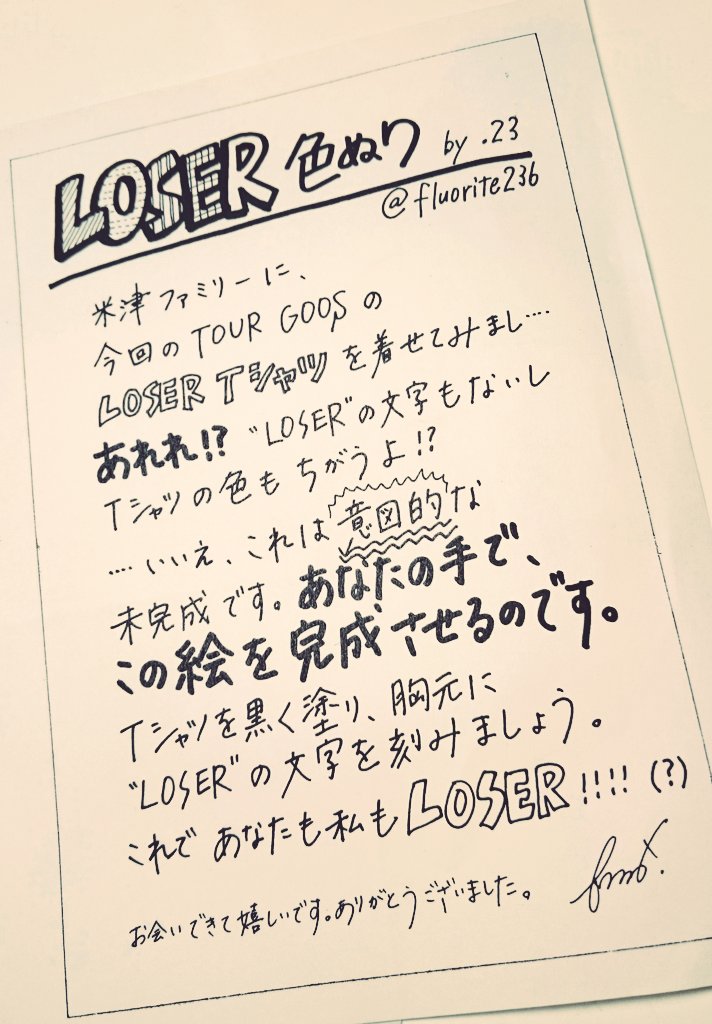 LOSER 色ぬり by .23
@fluorite236
米津ファミリーに、
今回の TOUR GOODS の
LOSER Tシャツ を着せてみまし‥‥
あれれ!? "LOSER"の文字もないし
Tシャツの色も ちがうよ!?
‥‥いいえ、これは意図的な
未完成です。あなたの手で、
この絵を完成させるのです。
Tシャツを黒く塗り、胸元に
"LOSER"の文字を刻みましょう。
これで あなたも私も LOSER!!!! (?)
お会いできて嬉しいです。ありがとうございました。